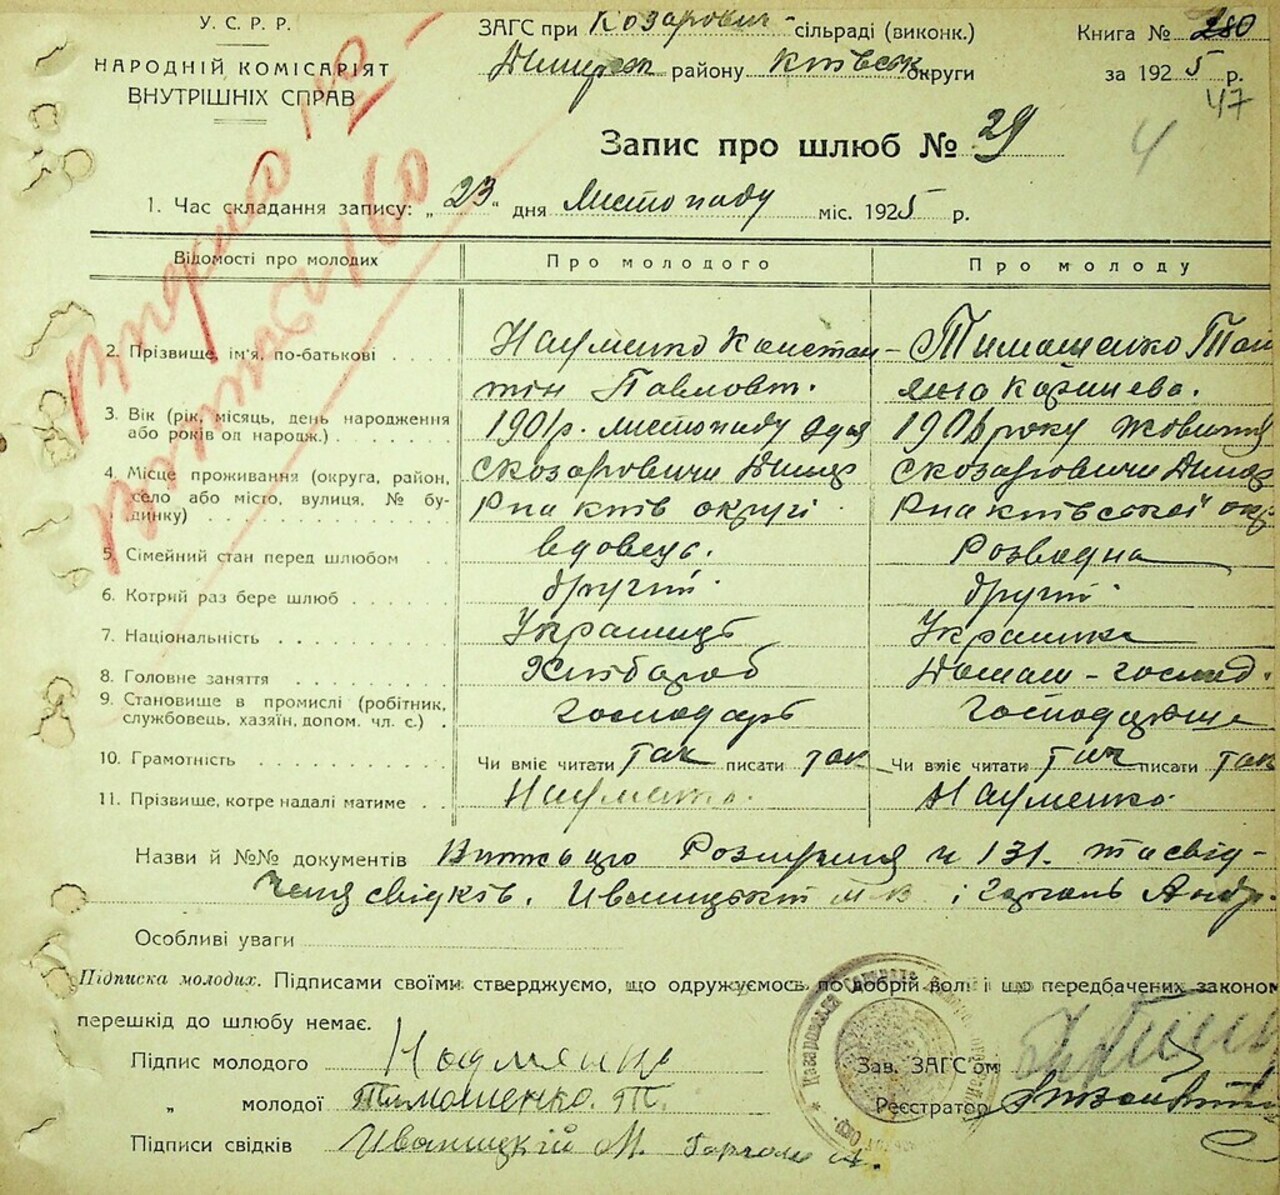 У.С.Р.Р.
НАРОДНІЙ КОМІСАРІЯТ
ВНУТРІШНІХ СПРАВ
ЗАГС при Козарович- сільраді (виконк.)
Димирск району Київськ округи
Книга № 280
за 1925 р.
47
4
Запис про шлюб № 29
1. Час складання запису: „23“ дня Листопаду міс. 1925 р.
Відомості про молодих Про молодого Про молоду
2. Прізвище, ім'я, по-батькові . . . . Науменко Констан- Тимошенко Тат
тін Павлович.
3. Вік (рік, місяць, день народження 1901р. листопаду 1901 року Жовтня
або років од народж.) . . . . . . . .
4. Місце проживання (округа, район, с Козаровичи Димер с Козаровичи Димер
село або місто, вулиця, № бу- Р на Київ округі Р на Київської окр
динку) . . . . . . . . . . . . .
5. Сімейний стан перед шлюбом . . вдовець. Розведна
6. Котрий раз бере шлюб . . . . . . другий. другий.
7. Національність . . . . . . . . . Українець Українка
8. Головне заняття . . . . . . . . Хлібароб Домаш-господ.
9. Становище в промислі (робітник, господарь господарюе
службовець, хазяїн, допом. чл. с.) .
10. Грамотність . . . . . . . . . . Чи вміє читати так писати так Чи вміє читати так писати так
11. Прізвище, котре надалі матиме . . Науменко. Науменко.
Назви й №№ документів Витяг про Розлучення ч 131. та свід-
чення свідків. Иваницький М В і Андр.
Особливі уваги
Підписка молодих. Підписами своїми стверджуємо, що одружуємось по добрій волі і що передбачених законом
перешкід до шлюбу немає.
Підпис молодого Надменко
„ молодої Тимошенко. Т.
Підписи свідків Иваницкій М.
Зав. ЗАГС'ом
Реєстратор